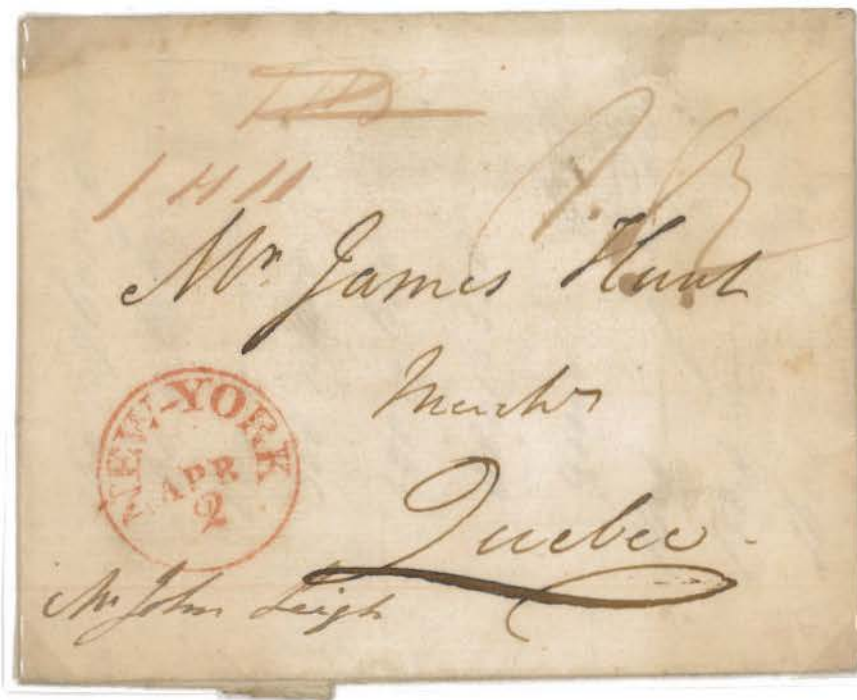 Mr. James Hunt
Mercht
Quebec.
NEW-YORK
APR
2
Mr John Leigh